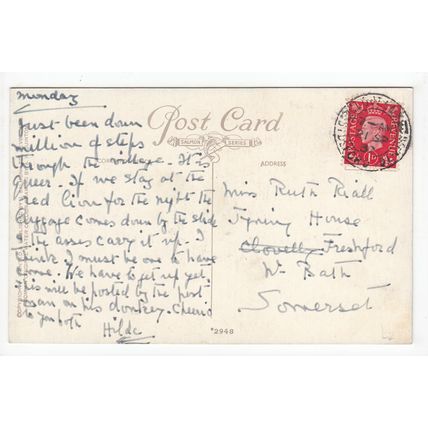 Monday
Just been down
million of steps
through the village. It is
queer. If we stay at the
Red Lion for the night the
luggage comes down by the slide
& the asses carry it up. I
think I must be one to have
come. We have to get up yet.
This will be posted by the post
man on his donkey. Cheerio
to you both
Hilda
Post Card
SALMON SERIES
ADDRESS
Miss Ruth Riall
Tyning House
Clovelly Freshford
Nr Bath
Somerset
*2948
POSTAGE
REVENUE
1D